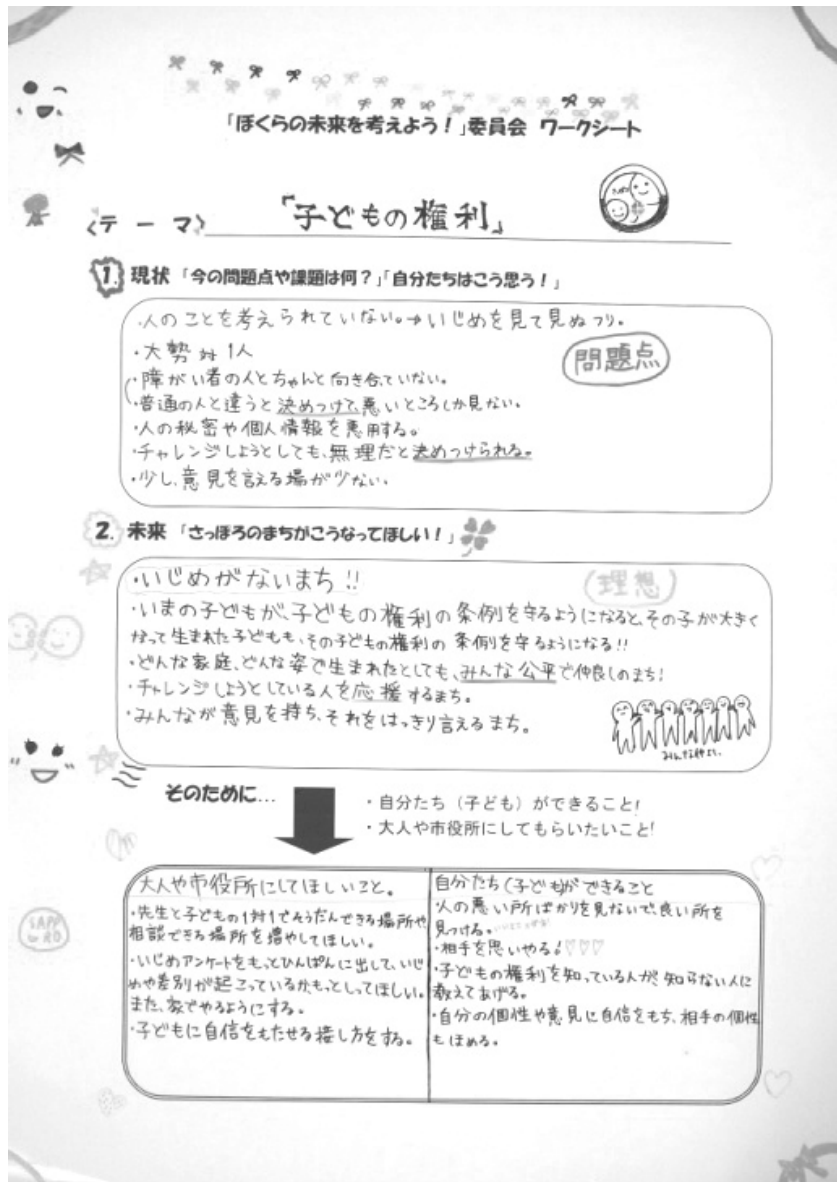 「ぼくらの未来を考えよう！」委員会 ワークシート
〈テーマ〉「子どもの権利」
1. 現状「今の問題点や課題は何？」「自分たちはこう思う！」
・人のことを考えられていない。→いじめを見て見ぬフリ。
問題点
・大勢対1人
・障がい者の人とちゃんと向き合っていない。
・普通の人と違うと決めつけて、悪いところしか見ない。
・人の秘密や個人情報を悪用する。
・チャレンジしようとしても、無理だと決めつけられる。
・少し、意見を言える場が少ない。
2. 未来「さっぽろのまちがこうなってほしい！」
・いじめがないまち!!
(理想)
・いまの子どもが、子どもの権利の条例を守るようになると、その子が大きく
なって生まれた子どもも、その子どもの権利の条例を守るようになる!!
・どんな家庭、どんな姿で生まれたとしても、みんな公平で仲良しのまち!
・チャレンジしようとしている人を応援するまち。
・みんなが意見を持ち、それをはっきり言えるまち。
みんな仲よし
そのために…
・自分たち（子ども）ができること!
・大人や市役所にしてもらいたいこと!
大人や市役所にしてほしいこと。
・先生と子どもの1対1でそうだんできる場所や
相談できる場所を増やしてほしい。
・いじめアンケートをもっとひんぱんに出して、いじ
めや差別が起こっているか、もっとしってほしい。
また、家でやるようにする。
・子どもに自信をもたせる接し方をする。
自分たち(子ども)ができること
・人の悪い所ばかりを見ないで、良い所を
見つける。
・相手を思いやる!♡♡♡
・子どもの権利を知っている人が、知らない人に
教えてあげる。
・自分の個性や意見に自信をもち、相手の個性
もほめる。
SAPP
ORO